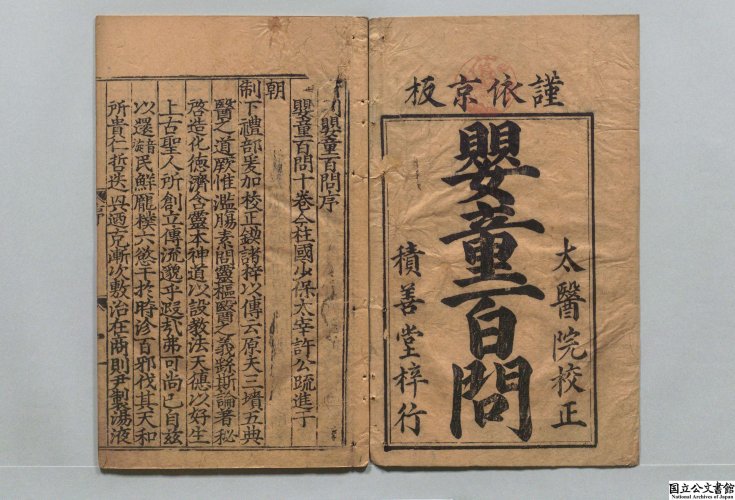 謹依京板
太醫院校正
嬰童百問
積善堂梓行
嬰童百問序
嬰童百問十卷今柱國少保太宰許公疏進于
朝
制下禮部爰加校正鋟諸梓以傳云原夫三墳五典
醫之道厥惟濫觴素問靈樞醫之義繇斯論著秘
啓造化德濟含靈本神道以設教法天德以好生
上古聖人所創立傳流藐乎遐哉弗可尚已自兹
以還民鮮龐樸六慾干於時沴百邪伐其天和
所貴仁哲迭興廼克漸次敷治在商則尹製湯液
序
国立公文書館
National Archives of Japan